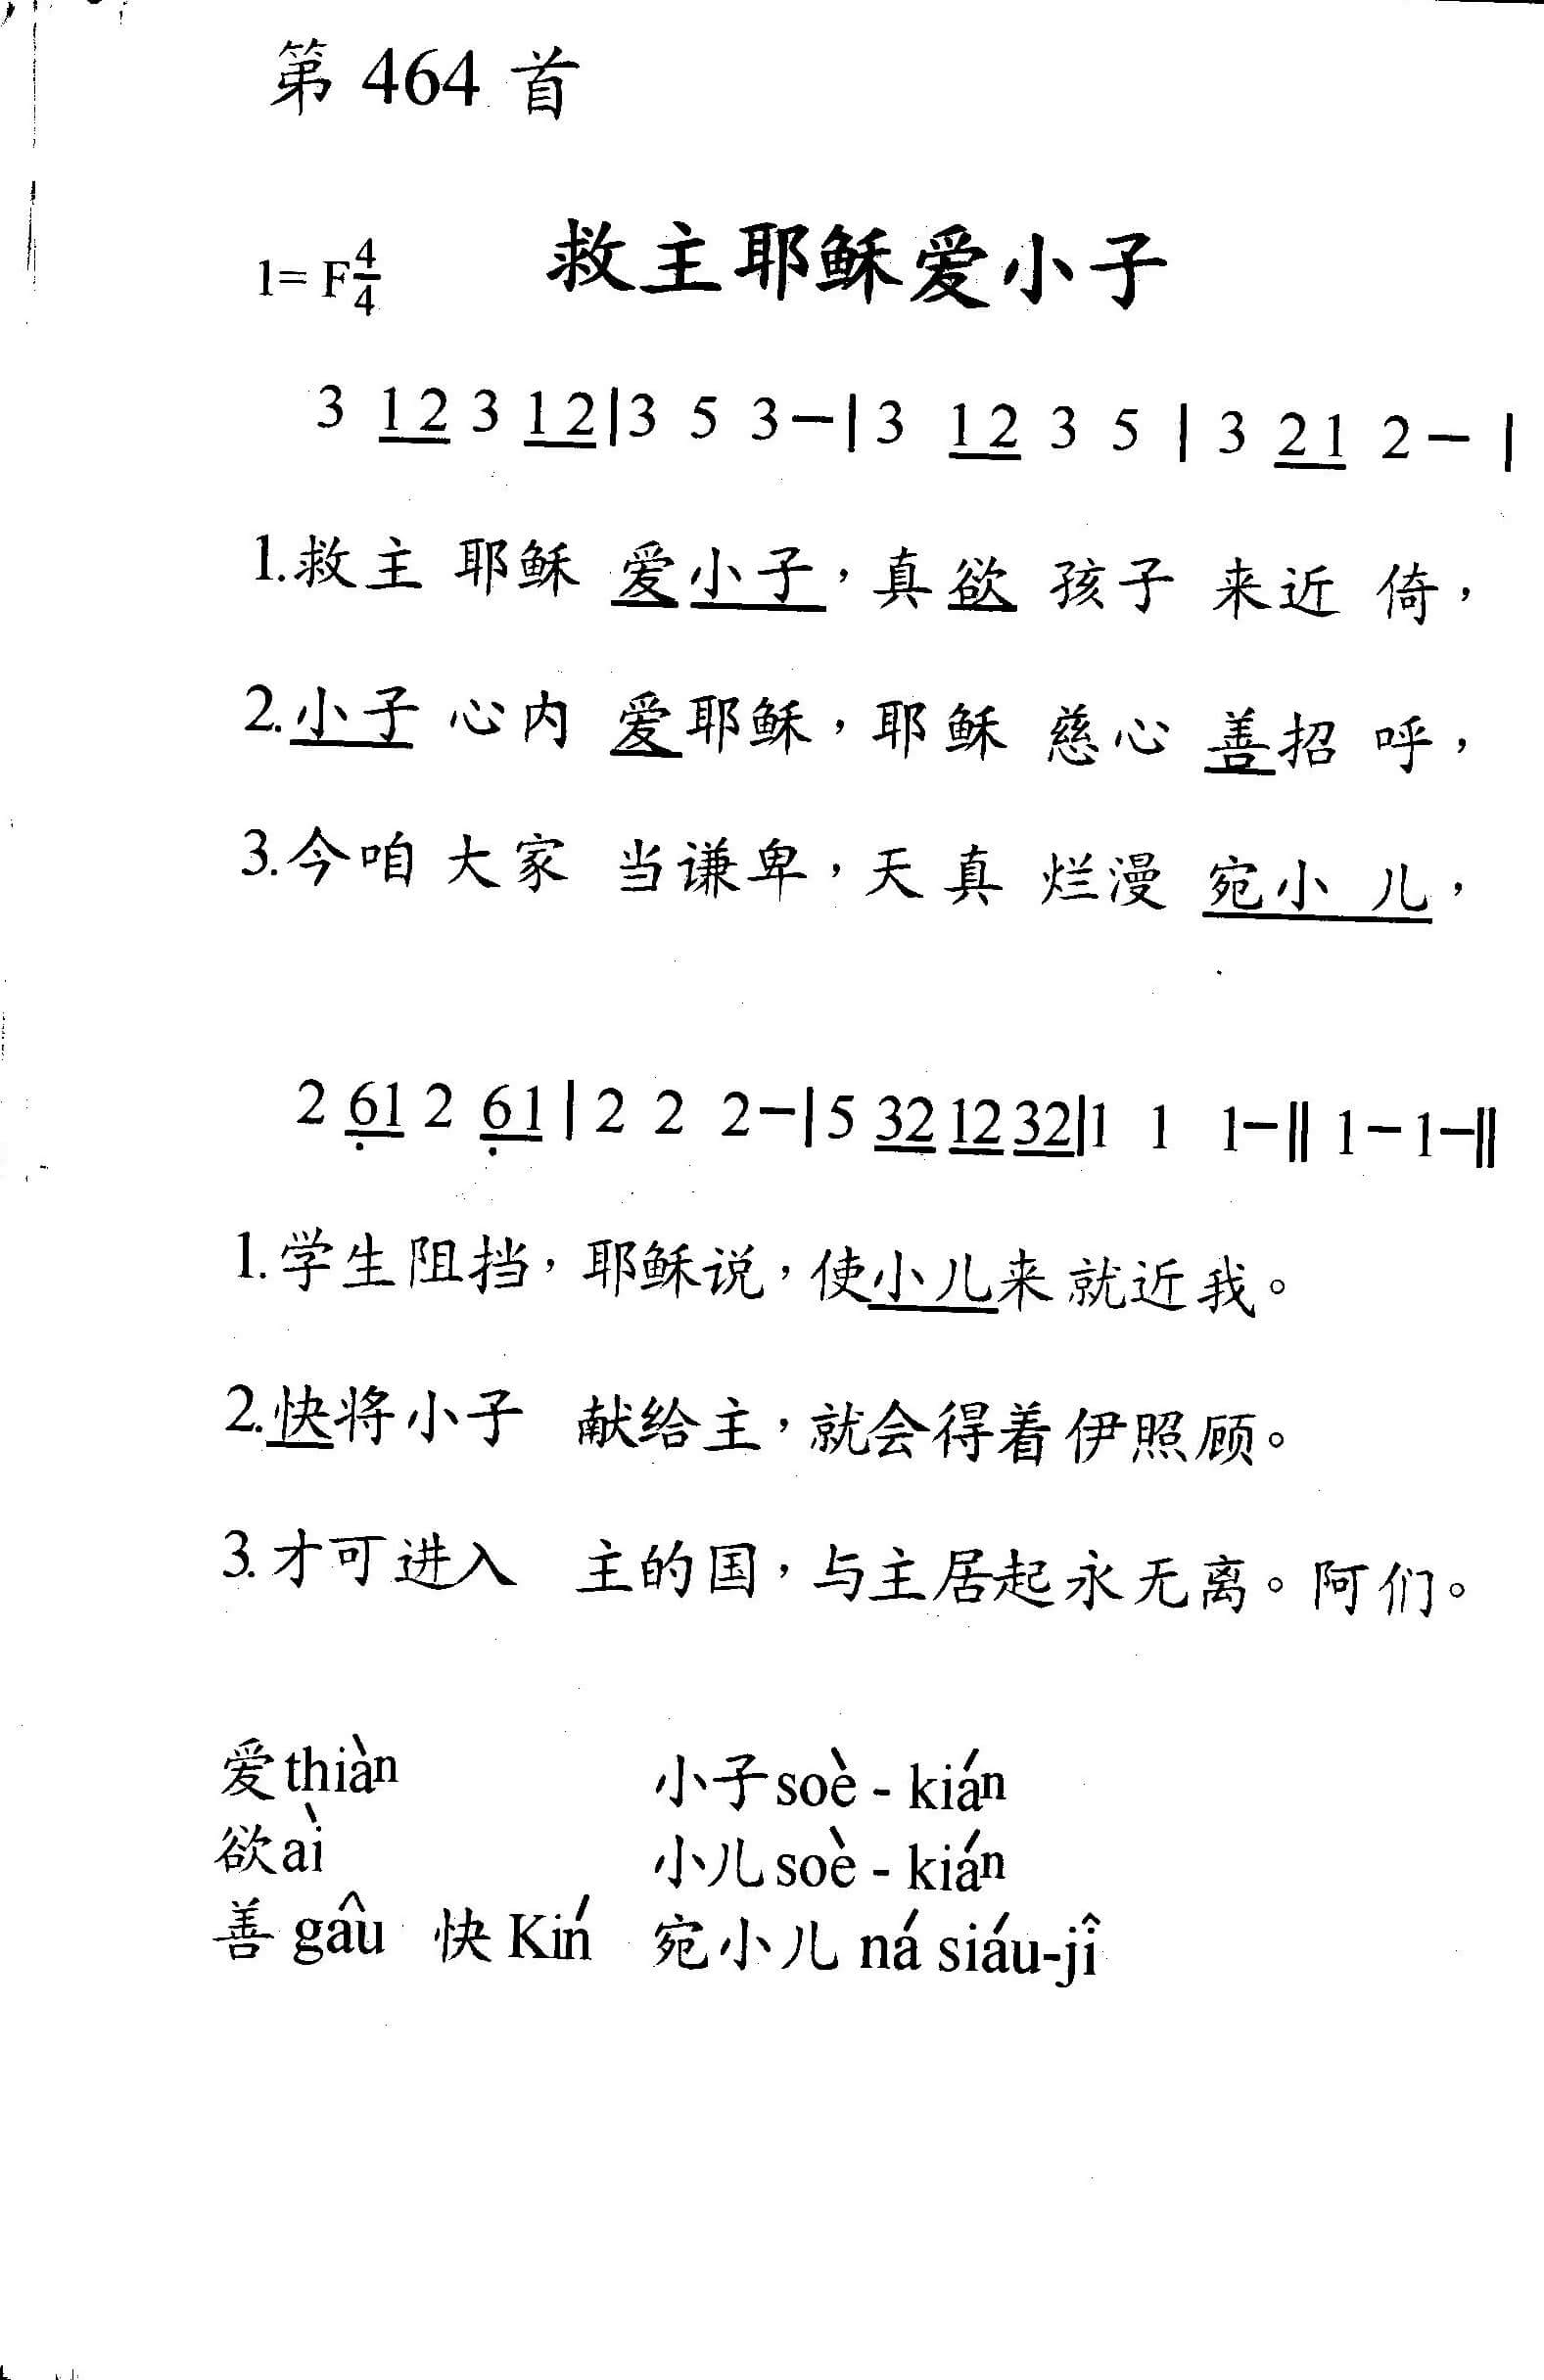 第 464 首
1= F 4/4 救主耶稣爱小子
3 12 3 12|3 5 3-|3 12 3 5 | 3 21 2- |
1.救主 耶稣 爱小子，真欲 孩子 来近 倚，
2.小子 心内 爱耶稣，耶稣 慈心 善招 呼，
3.今咱 大家 当谦卑，天真 烂漫 宛小 儿，
2 6̣1 2 6̣1|2 2 2-|5 32 12 32|1 1 1-‖ 1-1-‖
1.学生阻挡，耶稣说，使小儿来就近我。
2.快将小子 献给主，就会得着伊照顾。
3.才可进入 主的国，与主居起永无离。阿们。
爱thiàⁿ 小子soè - kiáⁿ
欲aì 小儿soè - kiáⁿ
善 gâu 快 Kín 宛小儿 ná siáu-jî